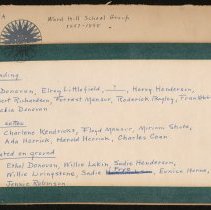 A
Ward Hill School Group
1897-1898
nding
Donovan, Elroy Littlefield, ?, Harry Henderson,
ert Richardson, Forrest Mansur, Roderick Bagley, Fran
ckie Donovan
settee
Charlene Kendricks, Floyd Mansur, Miriam Shute,
Ada Horrick, Harold Horrick, Charles Coan
ted on ground
Ethel Donovan, Willie Lakin, Sadie Henderson,
Willie Livingstone, Sadie Ford, Eunice Horne,
Jennie Robinson